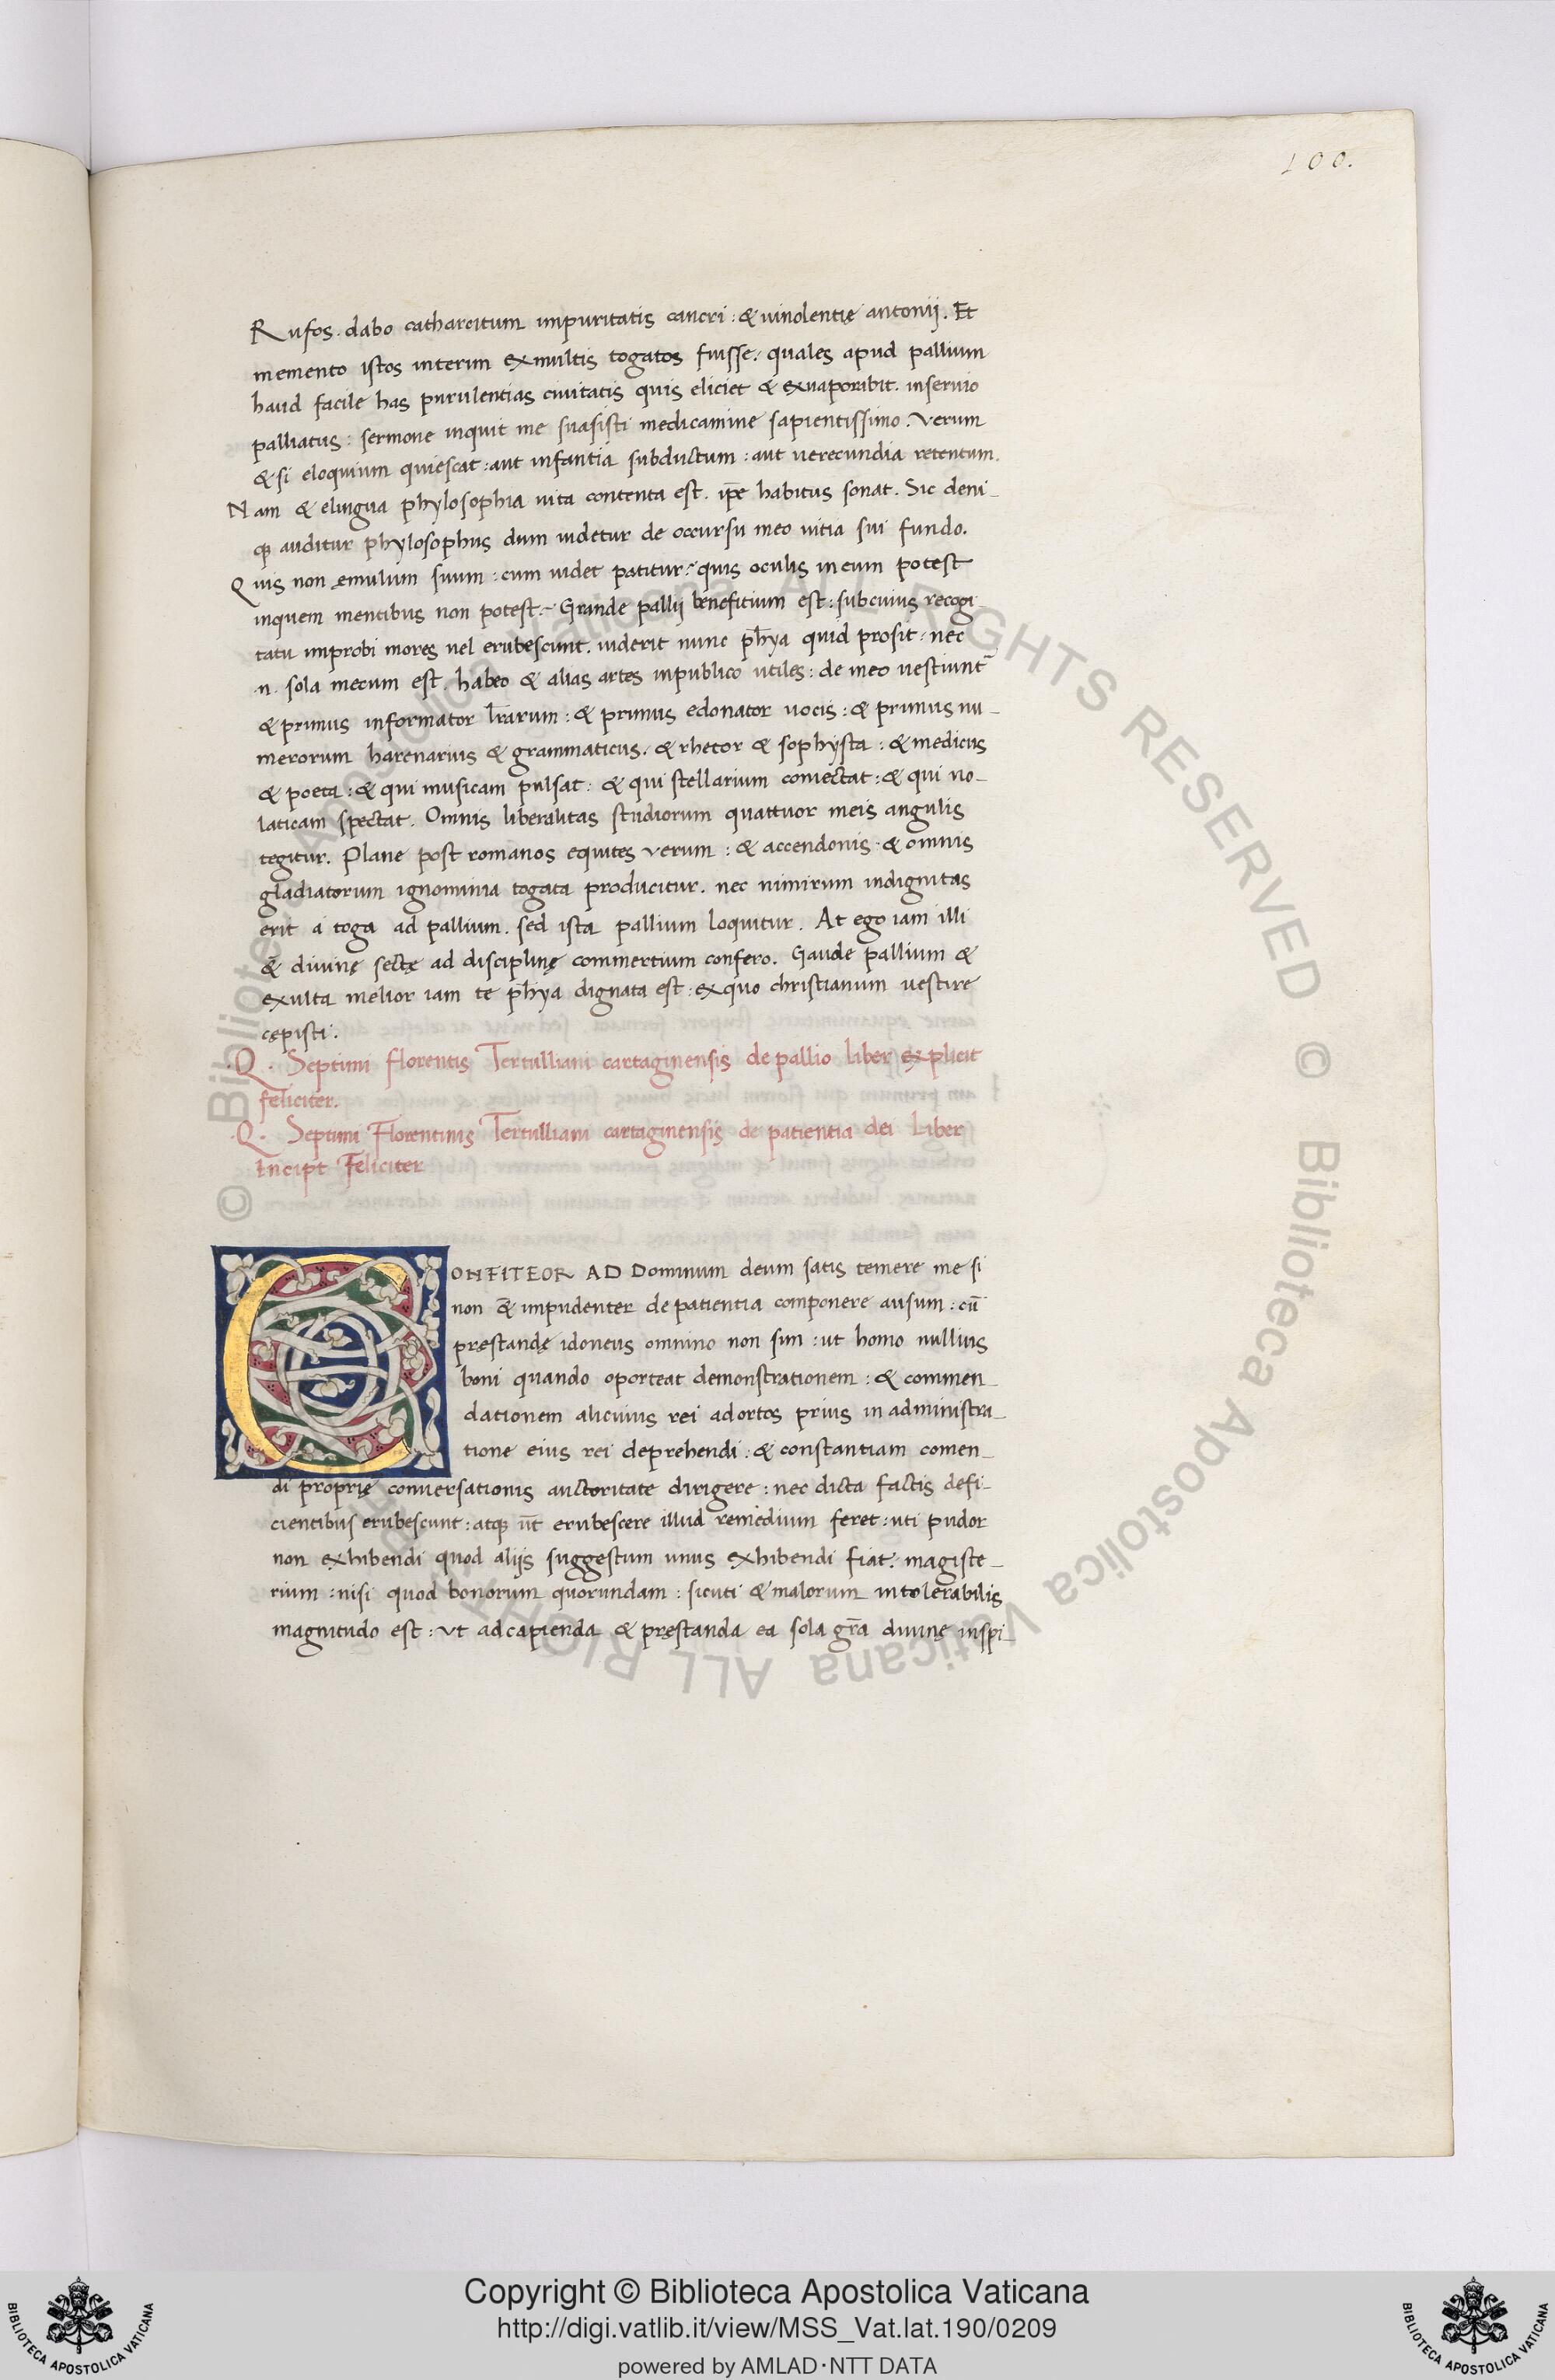 100.
Rufos. dabo catharcitum impuritatis cancri: & uinolentię antonij. Et
memento istos interim exmultis togatos fuisse: quales apud pallium
haud facile has purulentias ciuitatis quis eliciet & exuaporibit. inseruio
palliatus: sermone inquit me suasisti medicamine sapientissimo. Verum
& si eloquium quiescat: aut infantia subductum: aut uerecundia retentum.
Nam & elingua phylosophia uita contenta est. ip̄e habitus sonat. Sic deni-
qꝫ auditur phylosophus dum uidetur de occursu meo uitia sui fundo.
Quis non ęmulum suum: cum uidet patitur? quis oculis in eum potest
inquem mentibus non potest? Grande pallij benefitium est: subcuius recogi
tatu improbi mores uel erubescunt. uiderit nunc ph̄ya quid prosit: nec
.n. sola mecum est. habeo & alias artes inpublico utiles: de meo uestiunt̄
& primus informator lr̄arum: & primus edonator uocis: & primus nu-
merorum harenarius & grammaticus. & rhetor & sophysta: & medicus
& poeta: & qui musicam pulsat: & qui stellarium coniectat: & qui uo-
laticam spectat. Omnis liberalitas studiorum quattuor meis angulis
tegitur. Plane post romanos equites verum: & accendonis. & omnis
gladiatorum ignominia togata producitur. nec nimirum indignitas
erit a toga ad pallium. sed ista pallium loquitur. At ego iam illi
& diuinę sectę ad disciplinę commertium confero. Gaude pallium &
exulta melior iam te ph̄ya dignata est: exquo christianum uestire
cępisti.
.Q. Septimi florentis Tertulliani cartaginensis de pallio liber explicit
feliciter.
.Q. Septimi Florentinis Tertulliani cartaginensis de patientia dei Liber
Incipt Feliciter
CONFITEOR AD Dominum deum satis temere me si
non & impudenter de patientia componere ausum: cū
pręstandę idoneus omnino non sim: ut homo nullius
boni quando oporteat demonstrationem: & commen-
dationem alicuius rei adortos prius in administra-
tione eius rei deprehendi: & constantiam comen-
di proprię conuersationis auctoritate dirigere: nec dicta factis defi-
cientibus erubescunt: atqꝫ ut̄ erubescere illud remedium feret: uti pudor
non exhibendi quod alijs suggestum unus exhibendi fiat: magiste-
rium: nisi quod bonorum quorundam: sicuti & malorum intolerabilis
magnitudo est: ut ad capienda & pręstanda ea sola gr̄a diuinę inspi-
© Biblioteca Apostolica Vaticana ALL RIGHTS RESERVED © Biblioteca Apostolica Vaticana ALL RIGHT
BIBLIOTECA APOSTOLICA VATICANA
Copyright © Biblioteca Apostolica Vaticana
http://digi.vatlib.it/view/MSS_Vat.lat.190/0209
powered by AMLAD·NTT DATA
BIBLIOTECA APOSTOLICA VATICANA